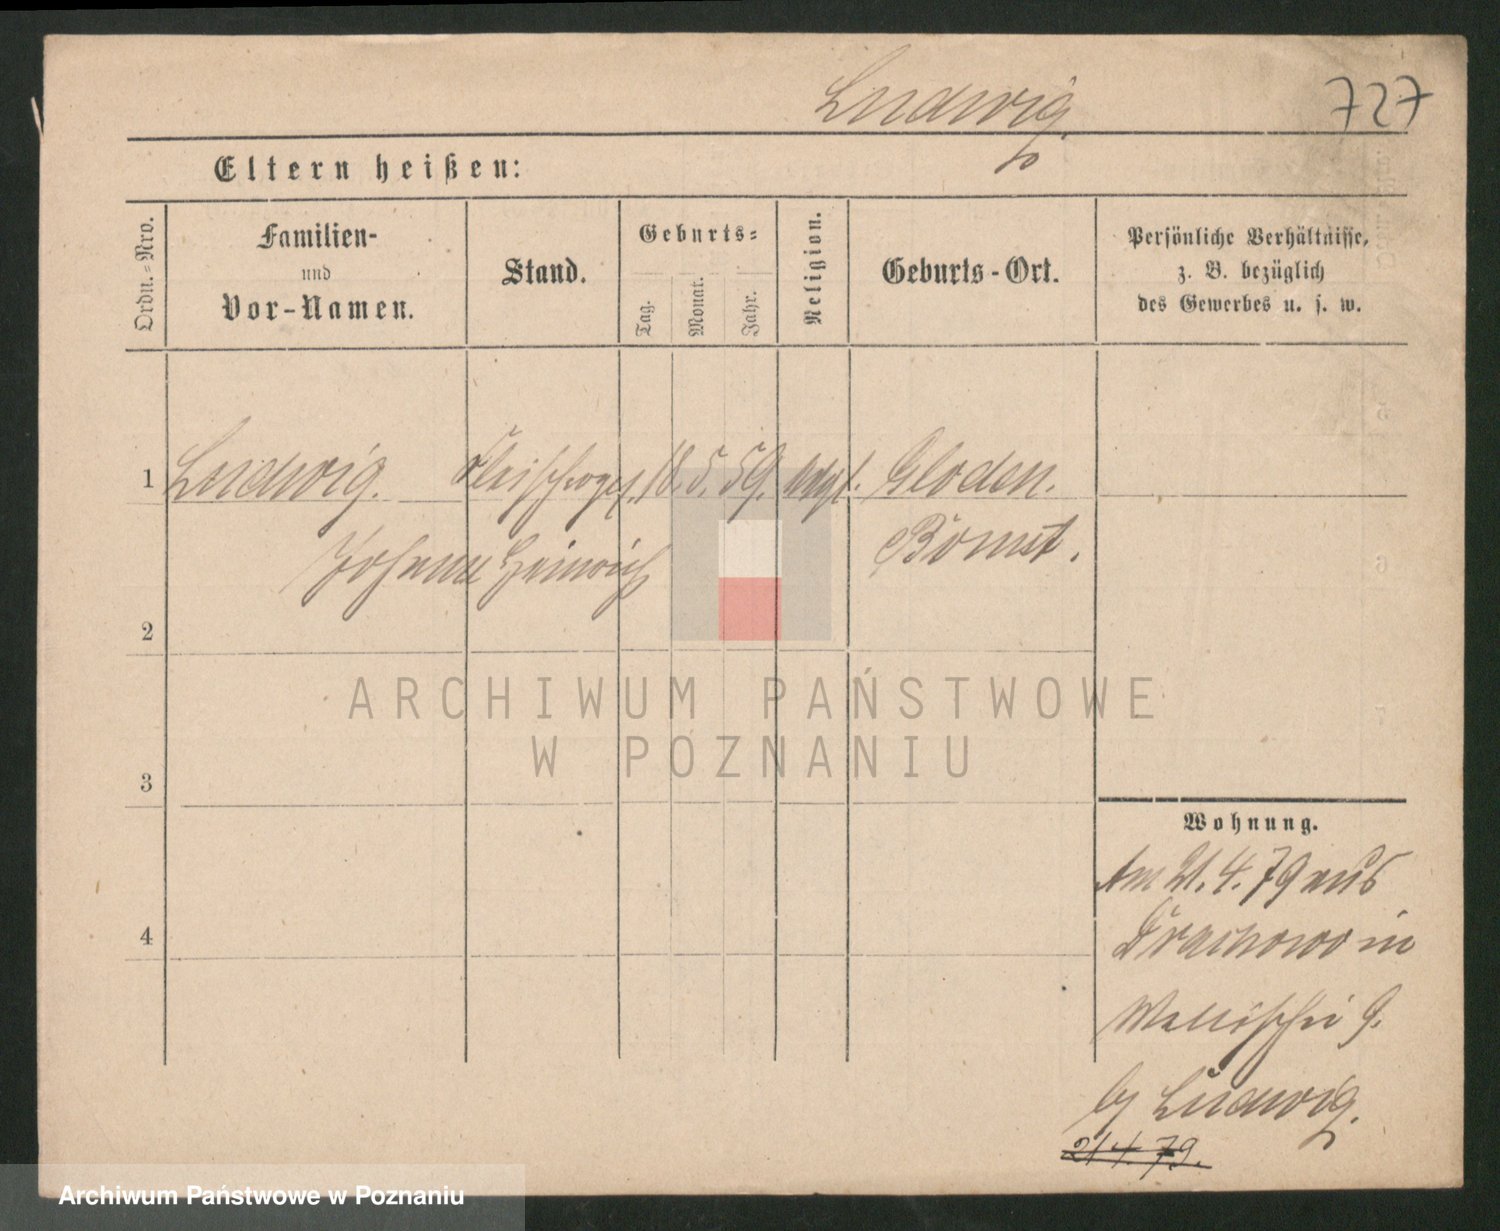 Ludwig.
727
Eltern heißen:
Ordn.-Nro.
Familien-
und
Vor-Namen.
Stand.
Geburts-
Tag.
Monat.
Jahr.
Religion.
Geburts-Ort.
Persönliche Verhältnisse,
z. B. bezüglich
des Gewerbes u. s. w.
1 Ludwig. Fleischerges. 18. 5. 59. Gloden.
Johann Heinrich Bomst.
2
3
4
ARCHIWUM PAŃSTWOWE
W POZNANIU
Wohnung.
Am 21. 4. 79 aus
in
Wallischei 9.
by Ludwig.
21 4. 79.
Archiwum Państwowe w Poznaniu